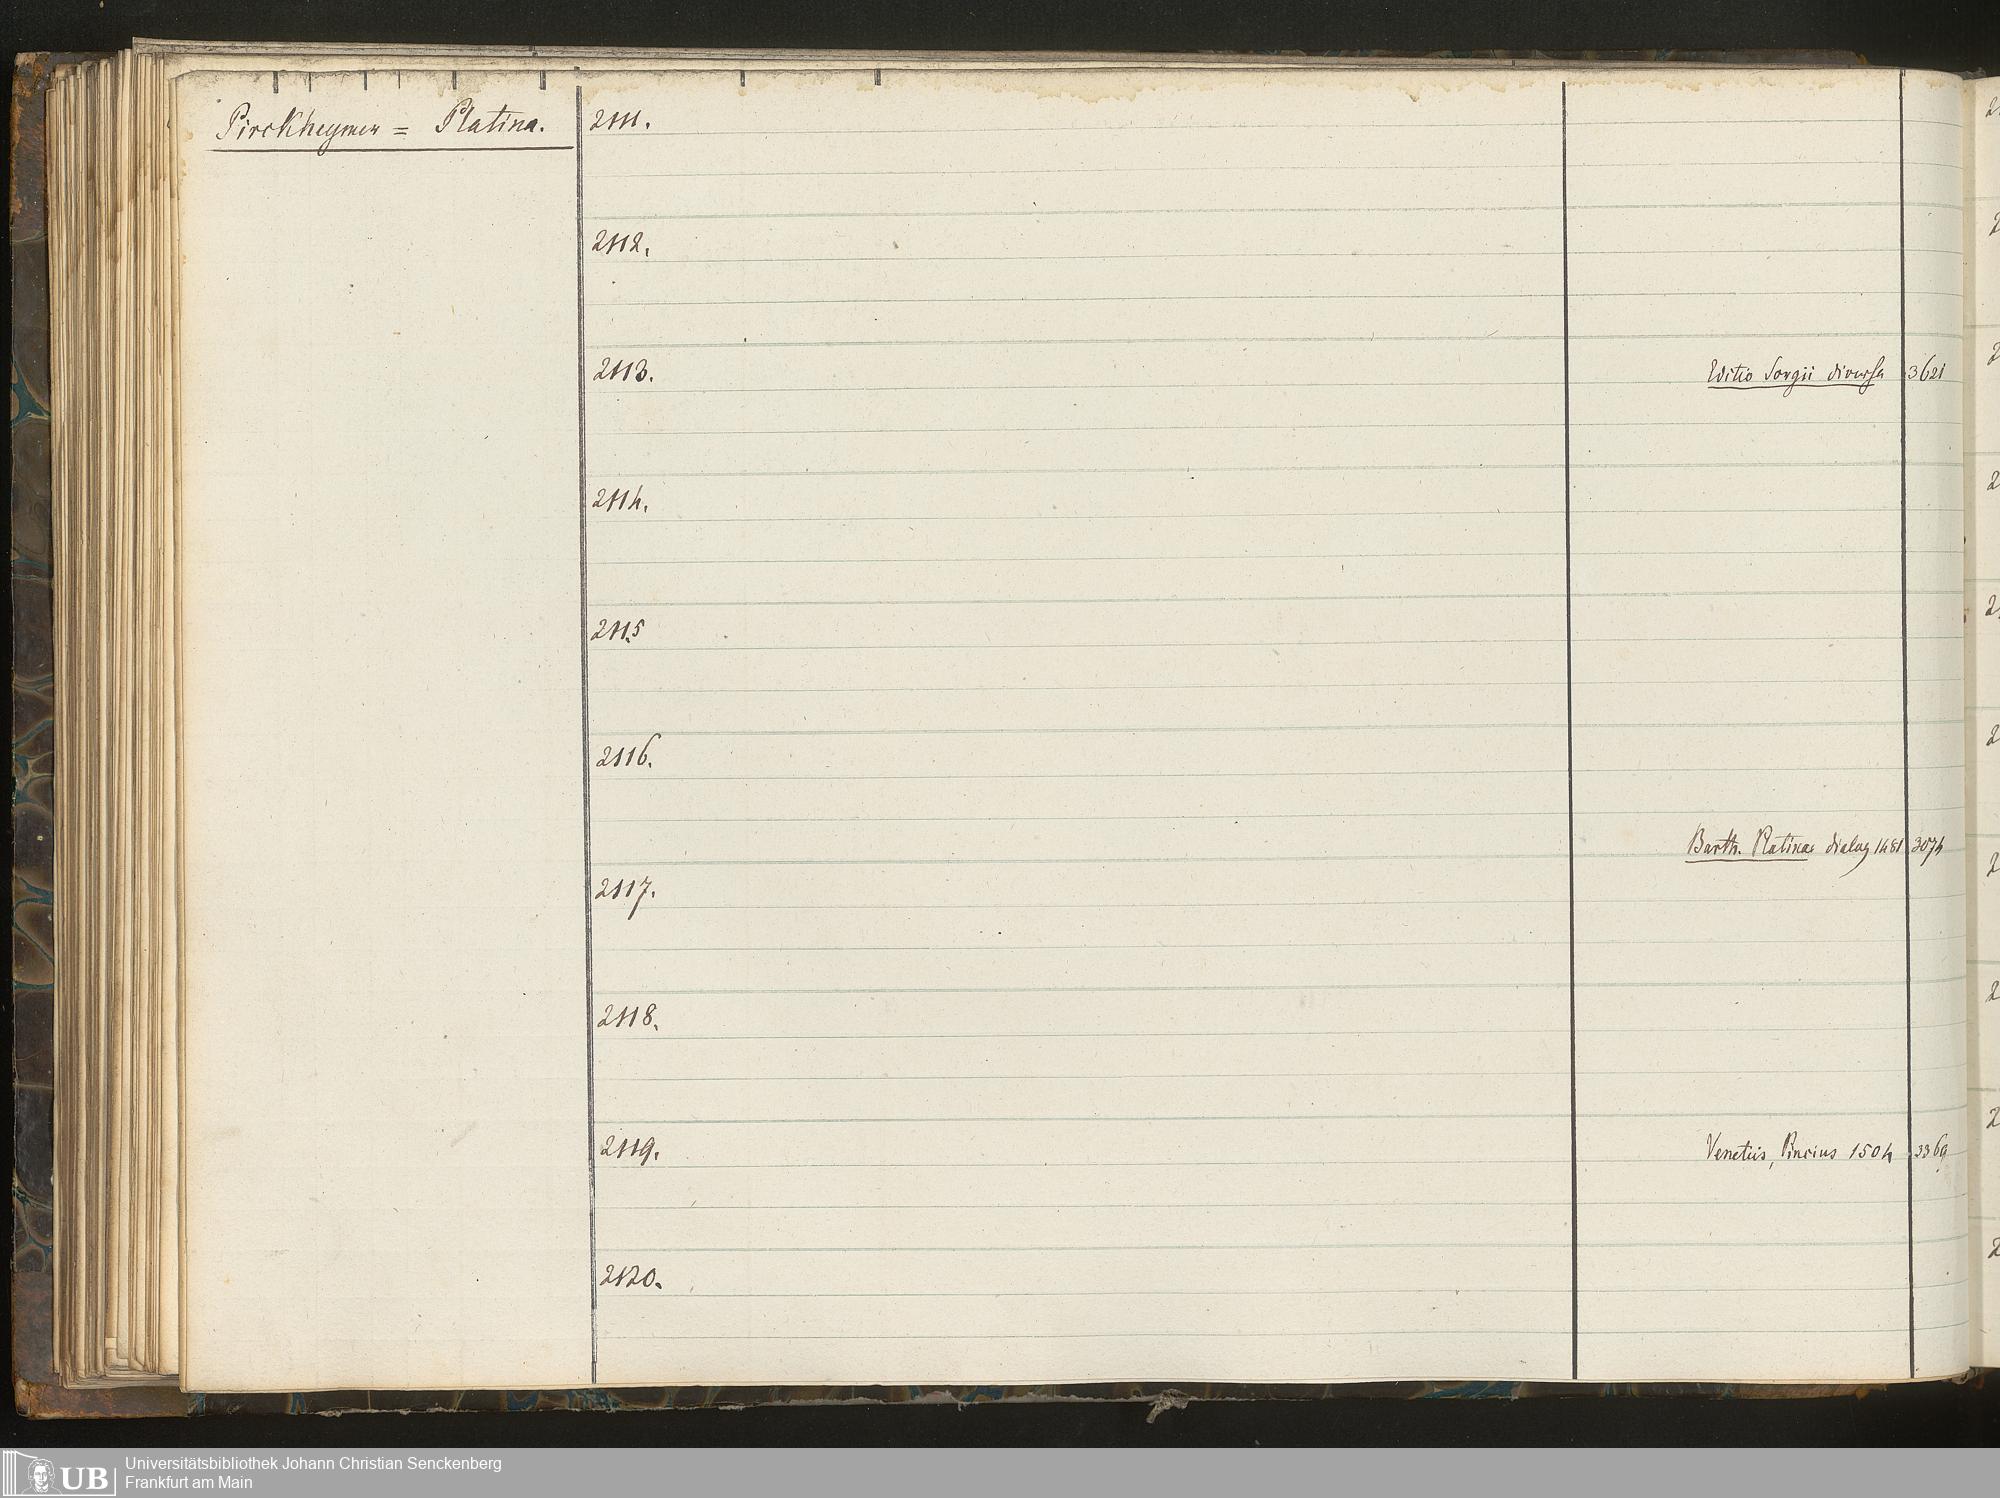 Pirckheymer = Platina.
2111.
2112.
2113.
Editio Sorgii diversa 3621
2114.
2115
2116.
Barth. Platinae dialog 1481 3074
2117.
2118.
2119.
Venetiis, Pincius 1504 3369
2120.
UB
Universitätsbibliothek Johann Christian Senckenberg
Frankfurt am Main